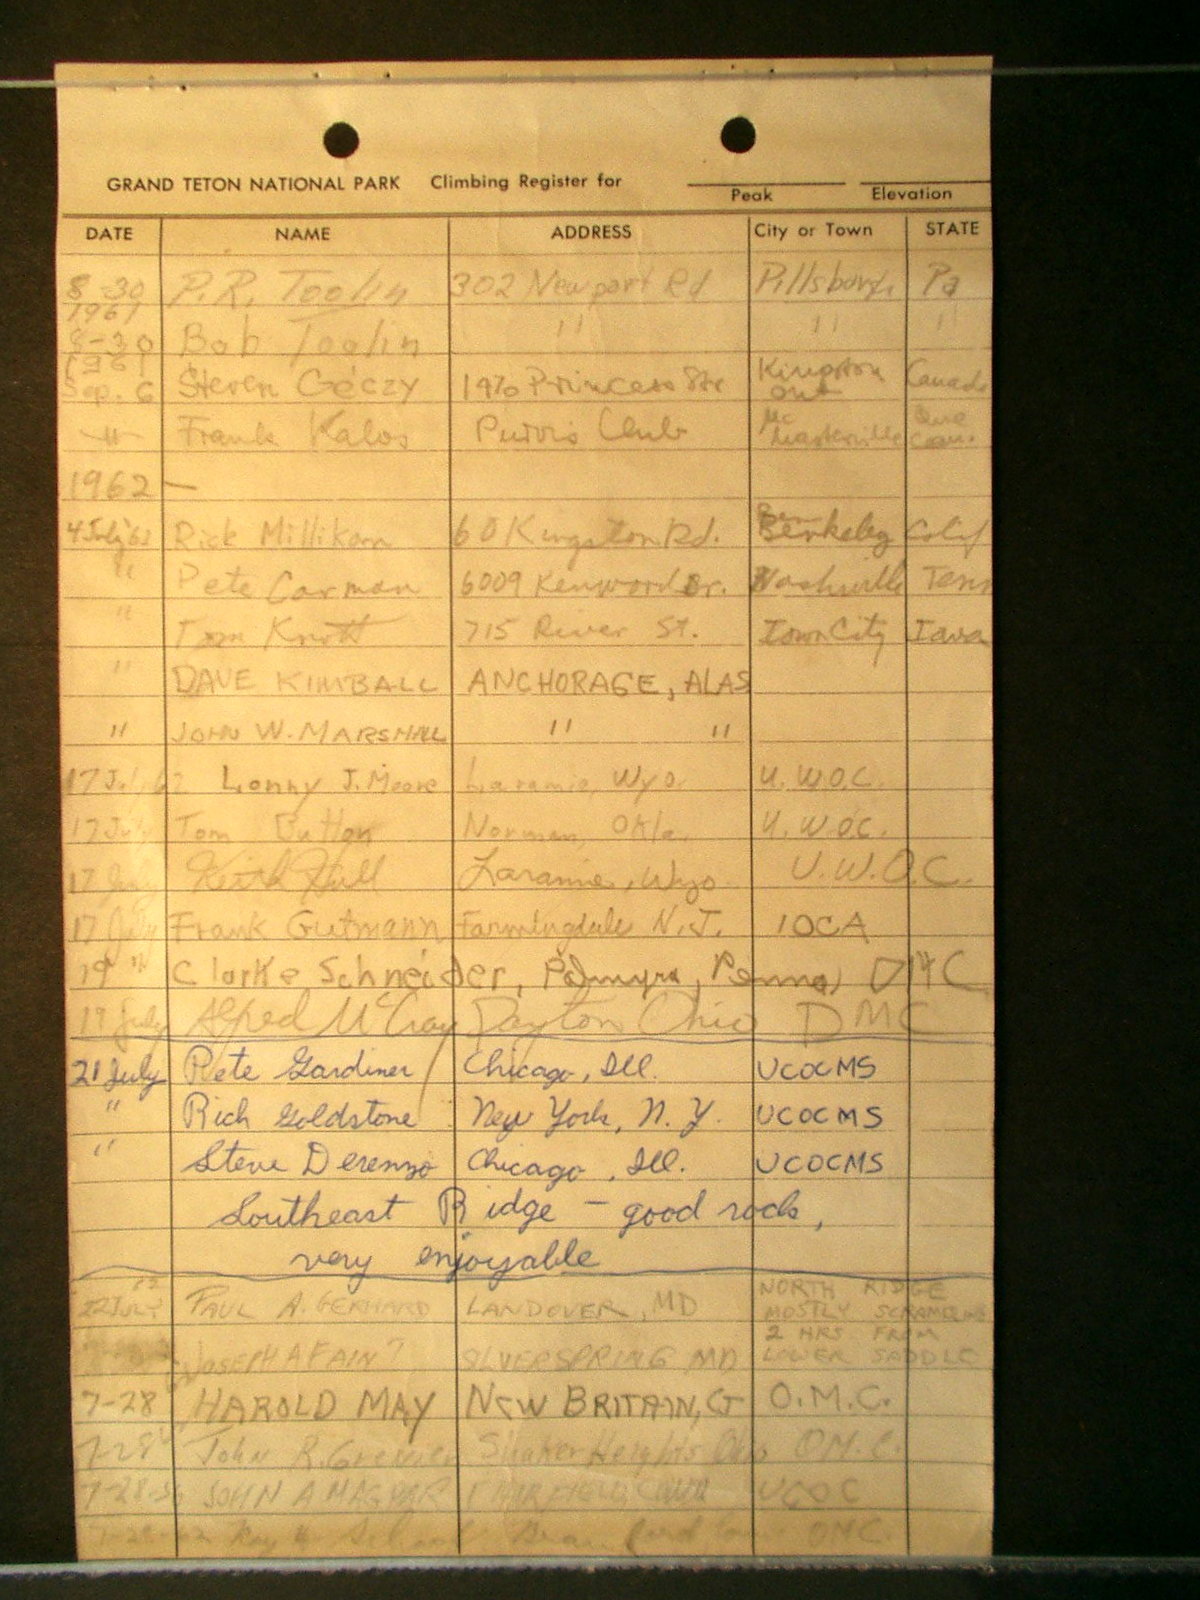 GRAND TETON NATIONAL PARK Climbing Register for
Peak Elevation
DATE NAME ADDRESS City or Town STATE
8-30 1961 P.R. Toolin 302 Newport Rd Pittsburgh Pa
8-30 1961 Bob Toolin " " "
Sep. 6 Steven Géczy 1970 Princess Str Kingston Ont Canada
-"- Frank Kalos Purvis Club Mc Masterville Que Can.
1962 —
4 July '62 Rick Millikan 60 Kingston Rd. Berkeley Calif
" Pete Carman 6009 Kenwood Dr. Nashville Tenn
" Tom Knott 715 River St. Iowa City Iowa
" DAVE KIMBALL ANCHORAGE, ALAS
" JOHN W. MARSHALL " "
17 July 62 Lonny J. Moore Laramie, Wyo. U.W.O.C.
17 July Tom Dutton Norman, Okla. U.W.O.C.
17 July Keith Hull Laramie, Wyo. U.W.O.C.
17 July Frank Gutmann Farmingdale N.J. IOCA
19 " Clarke Schneider, Palmyra, Penna, DMC
19 July Alfred McCray Dayton Ohio DMC
21 July Pete Gardiner Chicago, Ill. UCOCMS
" Rich Goldstone New York, N.Y. UCOCMS
" Steve Derenzo Chicago, Ill. UCOCMS
Southeast Ridge – good rock,
very enjoyable
22 July PAUL A. GERHARD LANDOVER, MD NORTH RIDGE
MOSTLY SCRAMBLING
2 HRS FROM
JOSEPH A FAINT SILVER SPRING MD LOWER SADDLE
7-28 HAROLD MAY NEW BRITAIN, CT O.M.C.
7-28 John R. Grenier Shaker Heights Ohio O.M.C.
7-28 JOHN A FAIRFIELD, CONN UCOC
Ray OMC.